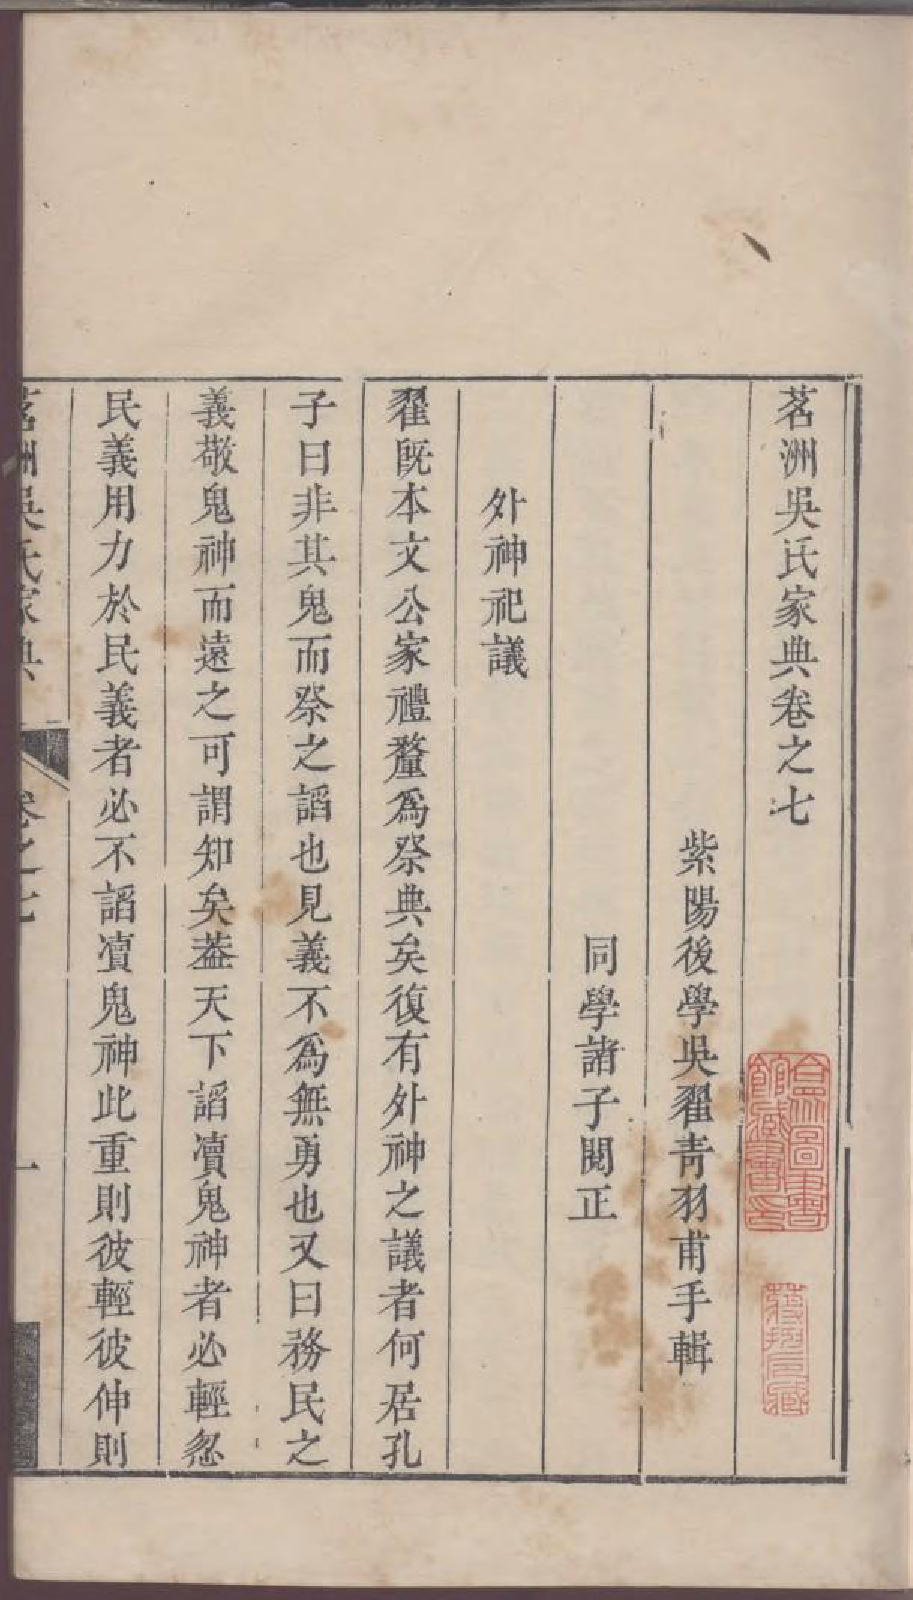 茗洲吳氏家典卷之七
紫陽後學吳翟青羽甫手輯
同學諸子閱正
外神祀議
翟旣本文公家禮釐爲祭典矣復有外神之議者何居孔
子曰非其鬼而祭之謟也見義不爲無勇也又曰務民之
義敬鬼神而遠之可謂知矣葢天下謟凟鬼神者必輕忽
民義用力於民義者必不謟凟鬼神此重則彼輕彼伸則
茗洲吳氏家典
卷之七
一